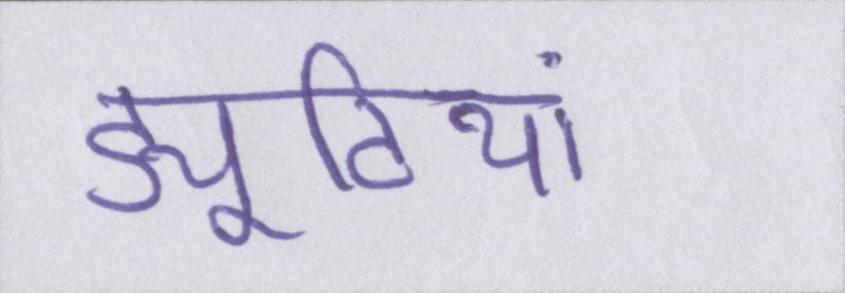 ड्यूटियां